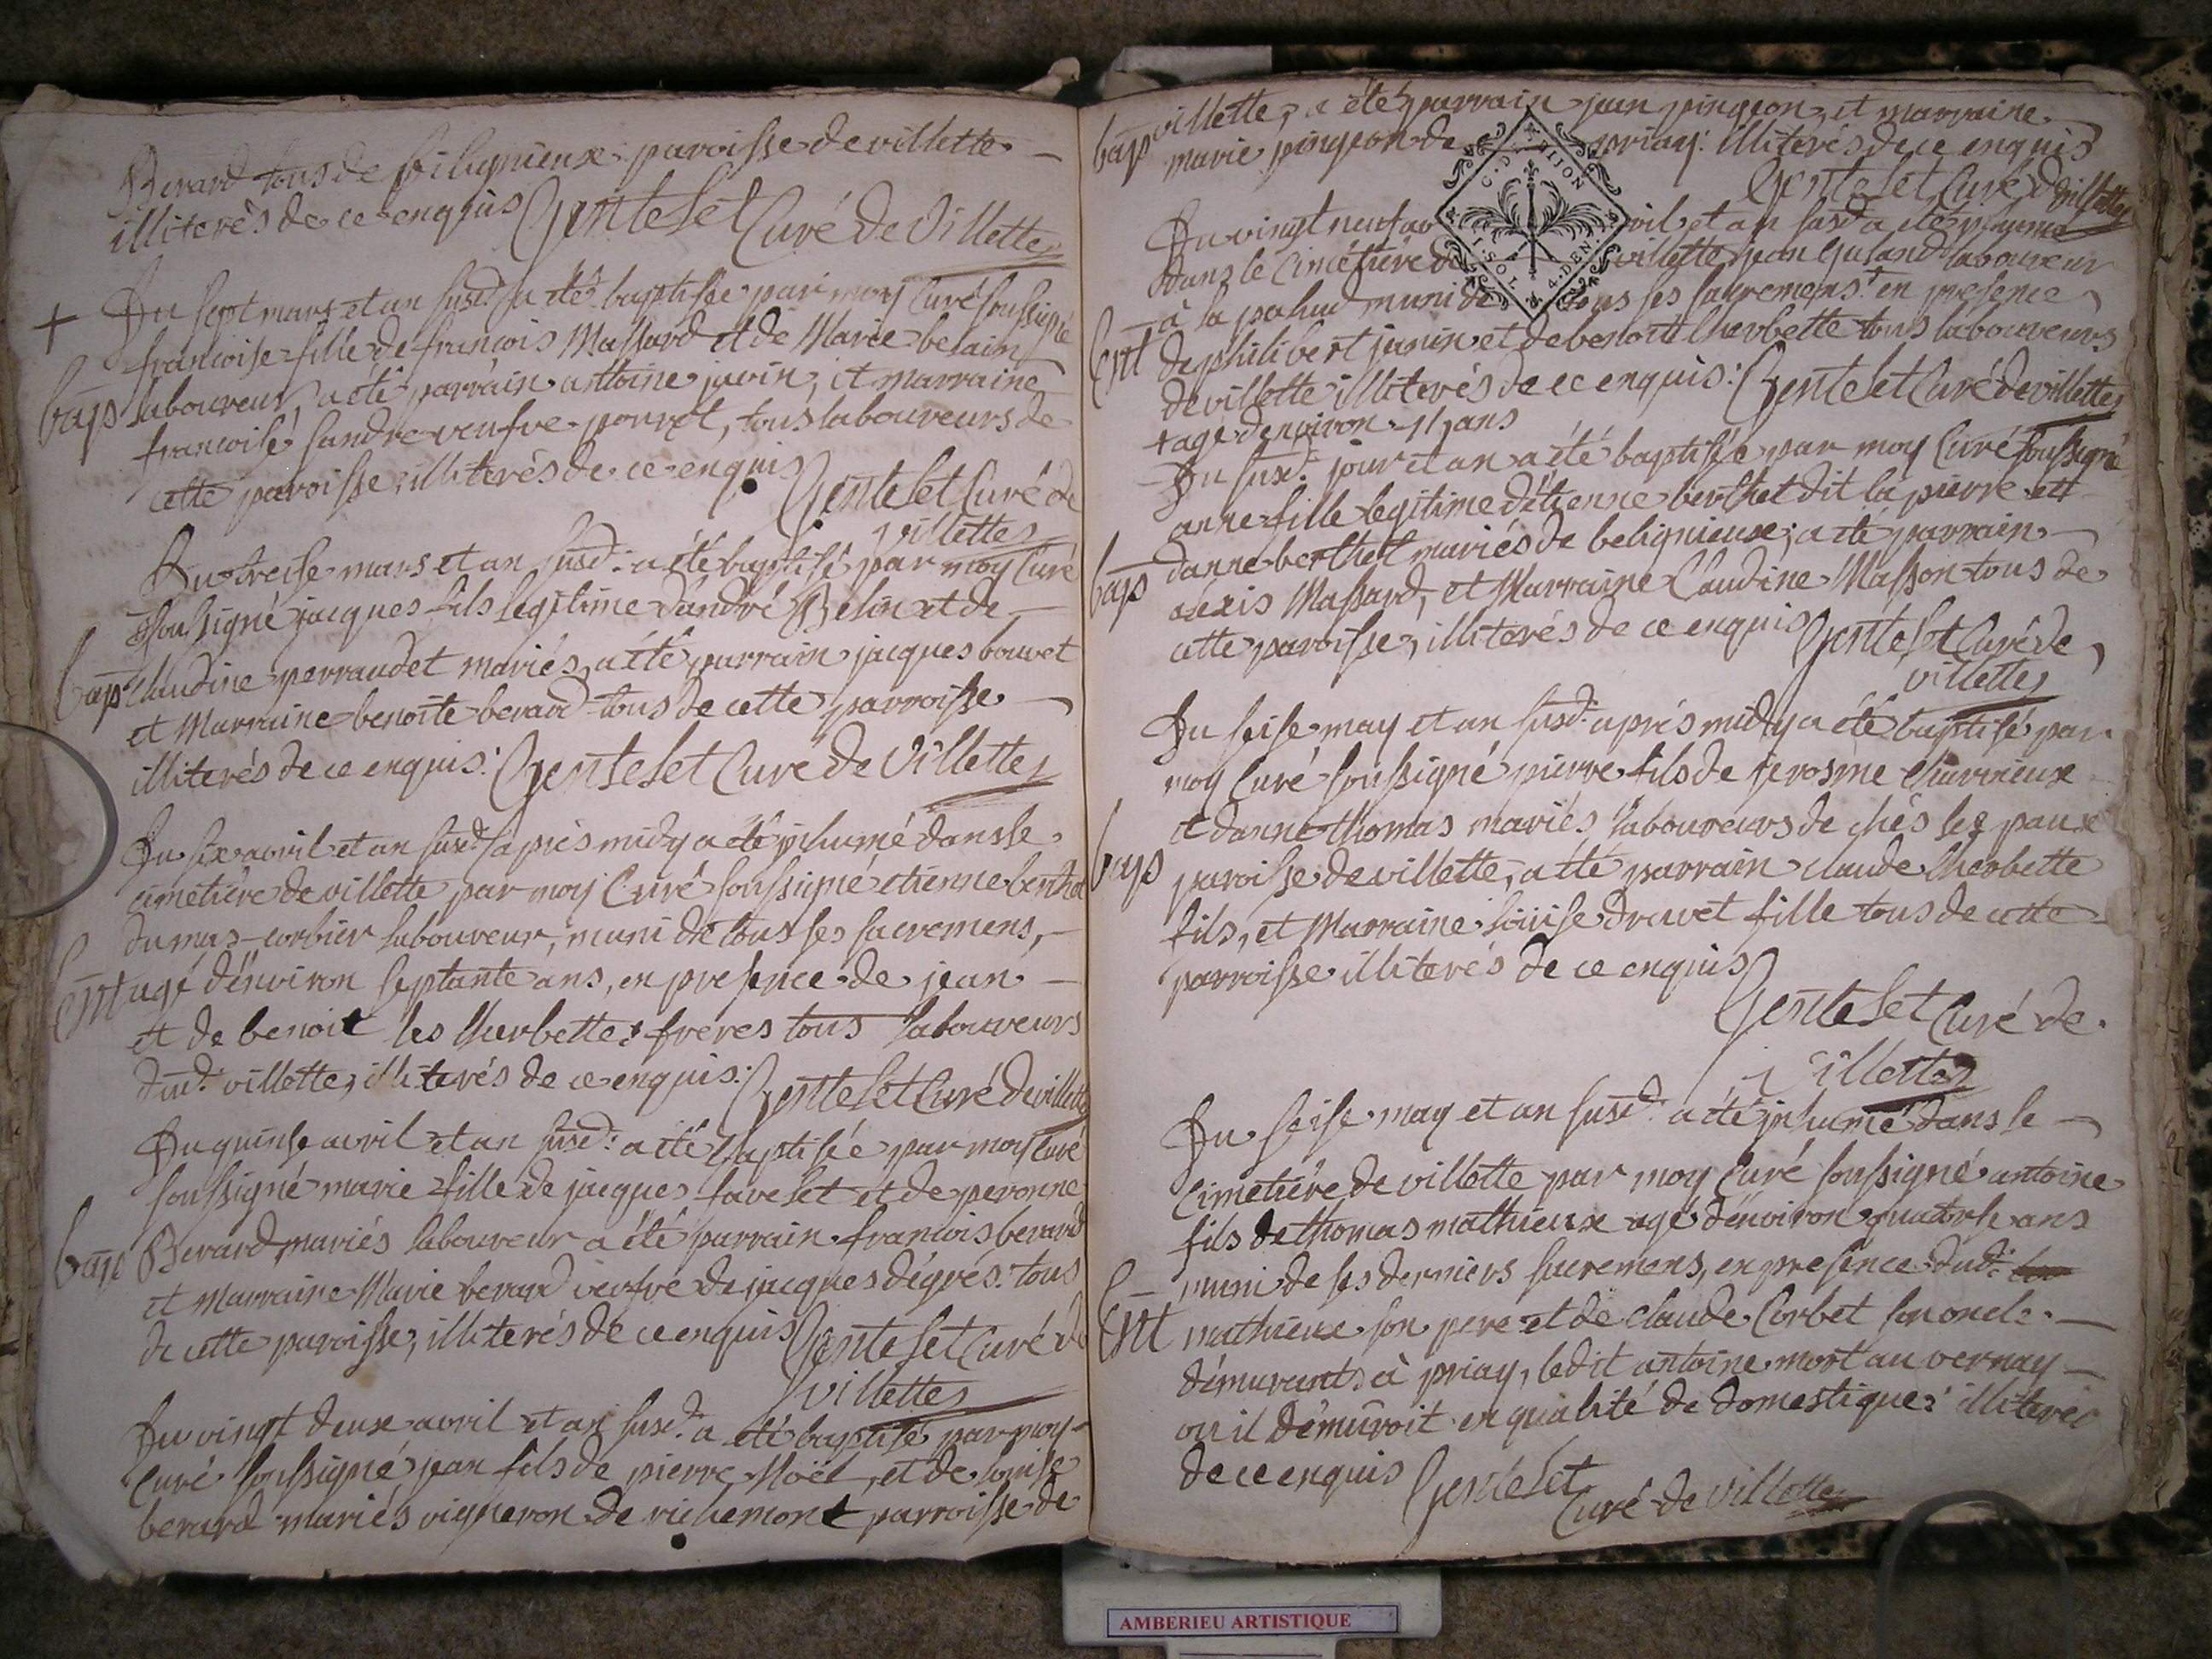 Berard tous de belignieux paroisse de villette
illiterés de ce enquis Gentelet Curé de Villette
+ Du sept mars et an susd. a été baptisée par moy Curé soussigné
francoise fille de francois Massard et de Marie belain
bap laboureur, a été parrain antoine juvin, et marraine
francoise sandre veufve pourret, tous laboureurs de
cette paroisse, illiterés de ce enquis Gentelet Curé de
villette
Du treise mars et an susd: a été baptisé par moy Curé
soussigné jacques fils legitime d'andré Belin et de
bap Claudine perraudet mariés, a été parrain jacques bouvet
et Marraine benoite berard tous de cette parroisse
illiterés de ce enquis: Gentelet Curé de Villette
Du six avril et an susd. après midy a été inhumé dans le
cimetiére de villette par moy Curé soussigné etienne berthet
du mas-corbier laboureur, muni de tous ses sacremens,
Ent agé d'environ septante ans, en presence de jean
et de benoit les lherbettes freres tous laboureurs
dud. villette, illiterés de ce enquis: Gentelet Curé de villette
Du quinse avril et an susd: a été baptisée par moy Curé
soussigné marie fille de jacques favelet et de peronne
bap Berard mariés laboureur a été parrain francois berard
et Marraine Marie berard veufve de jacques dégrés: tous
de cette paroisse, illiterés de ce enquis Gentelet Curé de
villette
Du vingt deux avril et an susd. a été baptisé par moy
Curé soussigné jean fils de pierre Noël, et de louise
berard mariés vigneron de richemont parroisse de
villette, a été parrain jean pingeon, et marraine
bap marie pingeon de priay: illiterés de ce enquis
Gentelet Curé de villette
G. DE DIJON
I. SOL. 4. DEN.
Du vingt neuf avril et an susd. a été inhumé
dans le Cimétiére de villette jean guland laboureur
à la palud muni de tous ses sacremens + en presence
Ent de philibert janin et de benoitt lherbette tous laboureurs
de villette illiterés de ce enquis: Gentelet Curé de villette
+ agé d'environ ans
Du susd. jour et an a été baptisée par moy Curé soussigné
anne fille legitime d'étienne berthet dit la pierre et
danne berthet mariés de beligneux; a été parrain
bap alexis Massard, et Marraine Claudine Masson tous de
cette paroisse, illiterés de ce enquis Gentelet Curé de
villette
Du seise may et an susd. aprés midy a été baptisé par
moy Curé soussigné pierre fils de jerosme Charvieux
et danne thomas mariés laboureurs de chés les paux
bap paroisse de villette, a été parrain claude lherbette
fils, et Marraine loüise druvet fille tous de cette
parroisse illiterés de ce enquis
Gentelet Curé de
Villette
Du seise may et an susd. a été inhumé dans le
Cimetiére de villette par moy Curé soussigné antoine
fils de thomas mathieux agé d'environ quatorse ans
muni de ses derniers sacremens, en presence dud:
Ent mathieux son pere et de claude Corbet son oncle
démurants à priay, ledit antoine mort au vernay
ou il démuroit en qualité de domestique: illiterés
de ce enquis Gentelet
Curé de Villette
AMBERIEU ARTISTIQUE